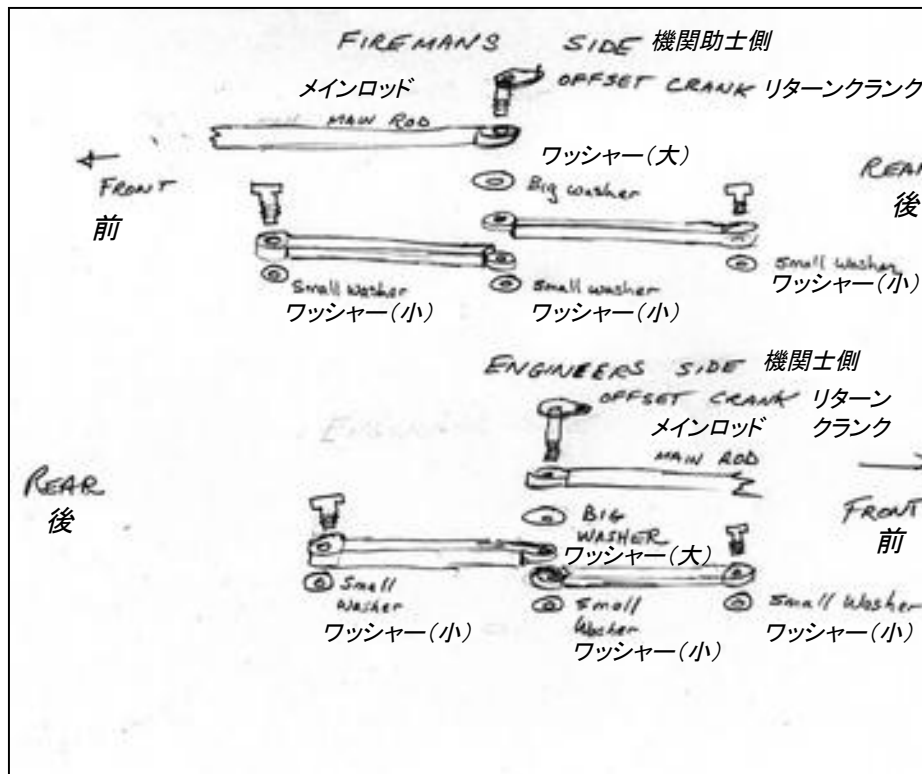 FIREMANS SIDE 機関助士側
メインロッド OFFSET CRANK リターンクランク
MAIN ROD
ワッシャー(大)
Big washer
FRONT
前
後
Small washer small washer small washer
ワッシャー(小) ワッシャー(小) ワッシャー(小)
ENGINEERS SIDE 機関士側
OFFSET CRANK リターン
メインロッド クランク
MAIN ROD
REAR
後
BIG
WASHER
ワッシャー(大)
FRONT
前
Small
Washer
ワッシャー(小)
Small
Washer
ワッシャー(小)
Small Washer
ワッシャー(小)